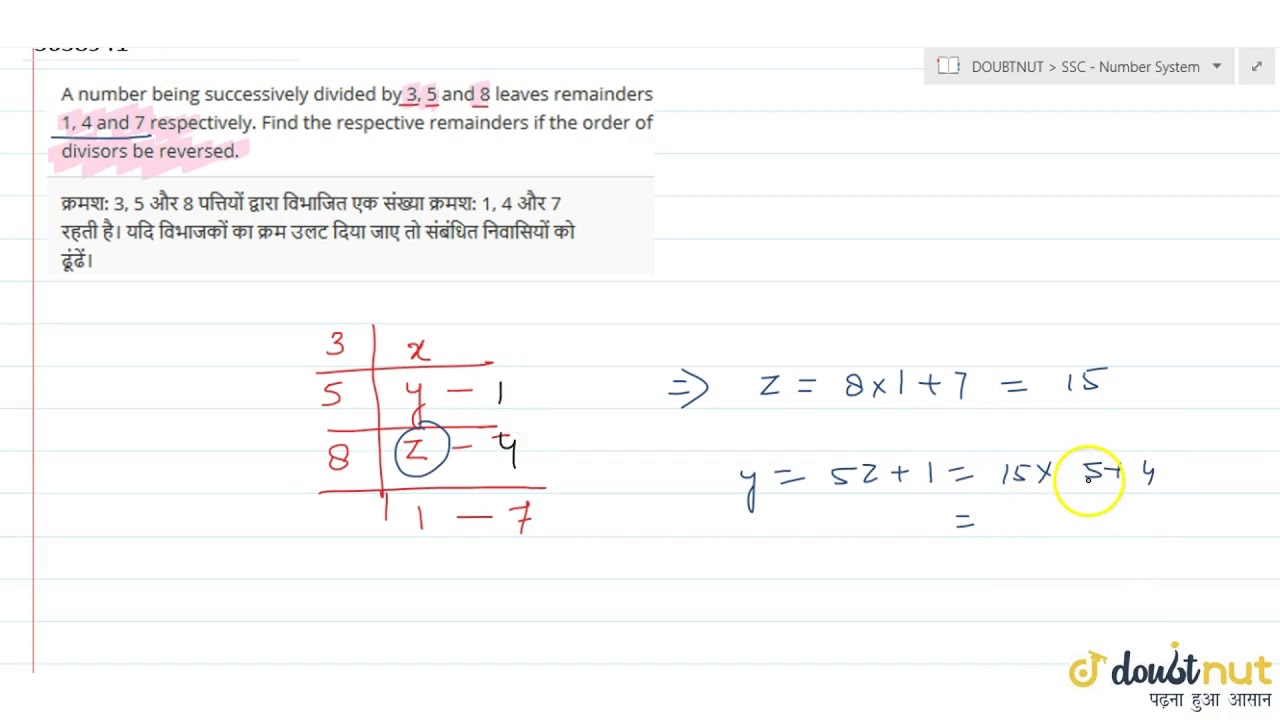 DOUBTNUT > SSC - Number System
A number being successively divided by 3, 5 and 8 leaves remainders
1, 4 and 7 respectively. Find the respective remainders if the order of
divisors be reversed.
क्रमश: 3, 5 और 8 पत्तियों द्वारा विभाजित एक संख्या क्रमश: 1, 4 और 7
रहती है। यदि विभाजकों का क्रम उलट दिया जाए तो संबंधित निवासियों को
ढूंढें।
3 | x
5 | y - 1
8 | z - 4
1 - 7
=> z = 8x1+7 = 15
y = 5z+1 = 15x 5+ 4
=
doubtnut
पढ़ना हुआ आसान